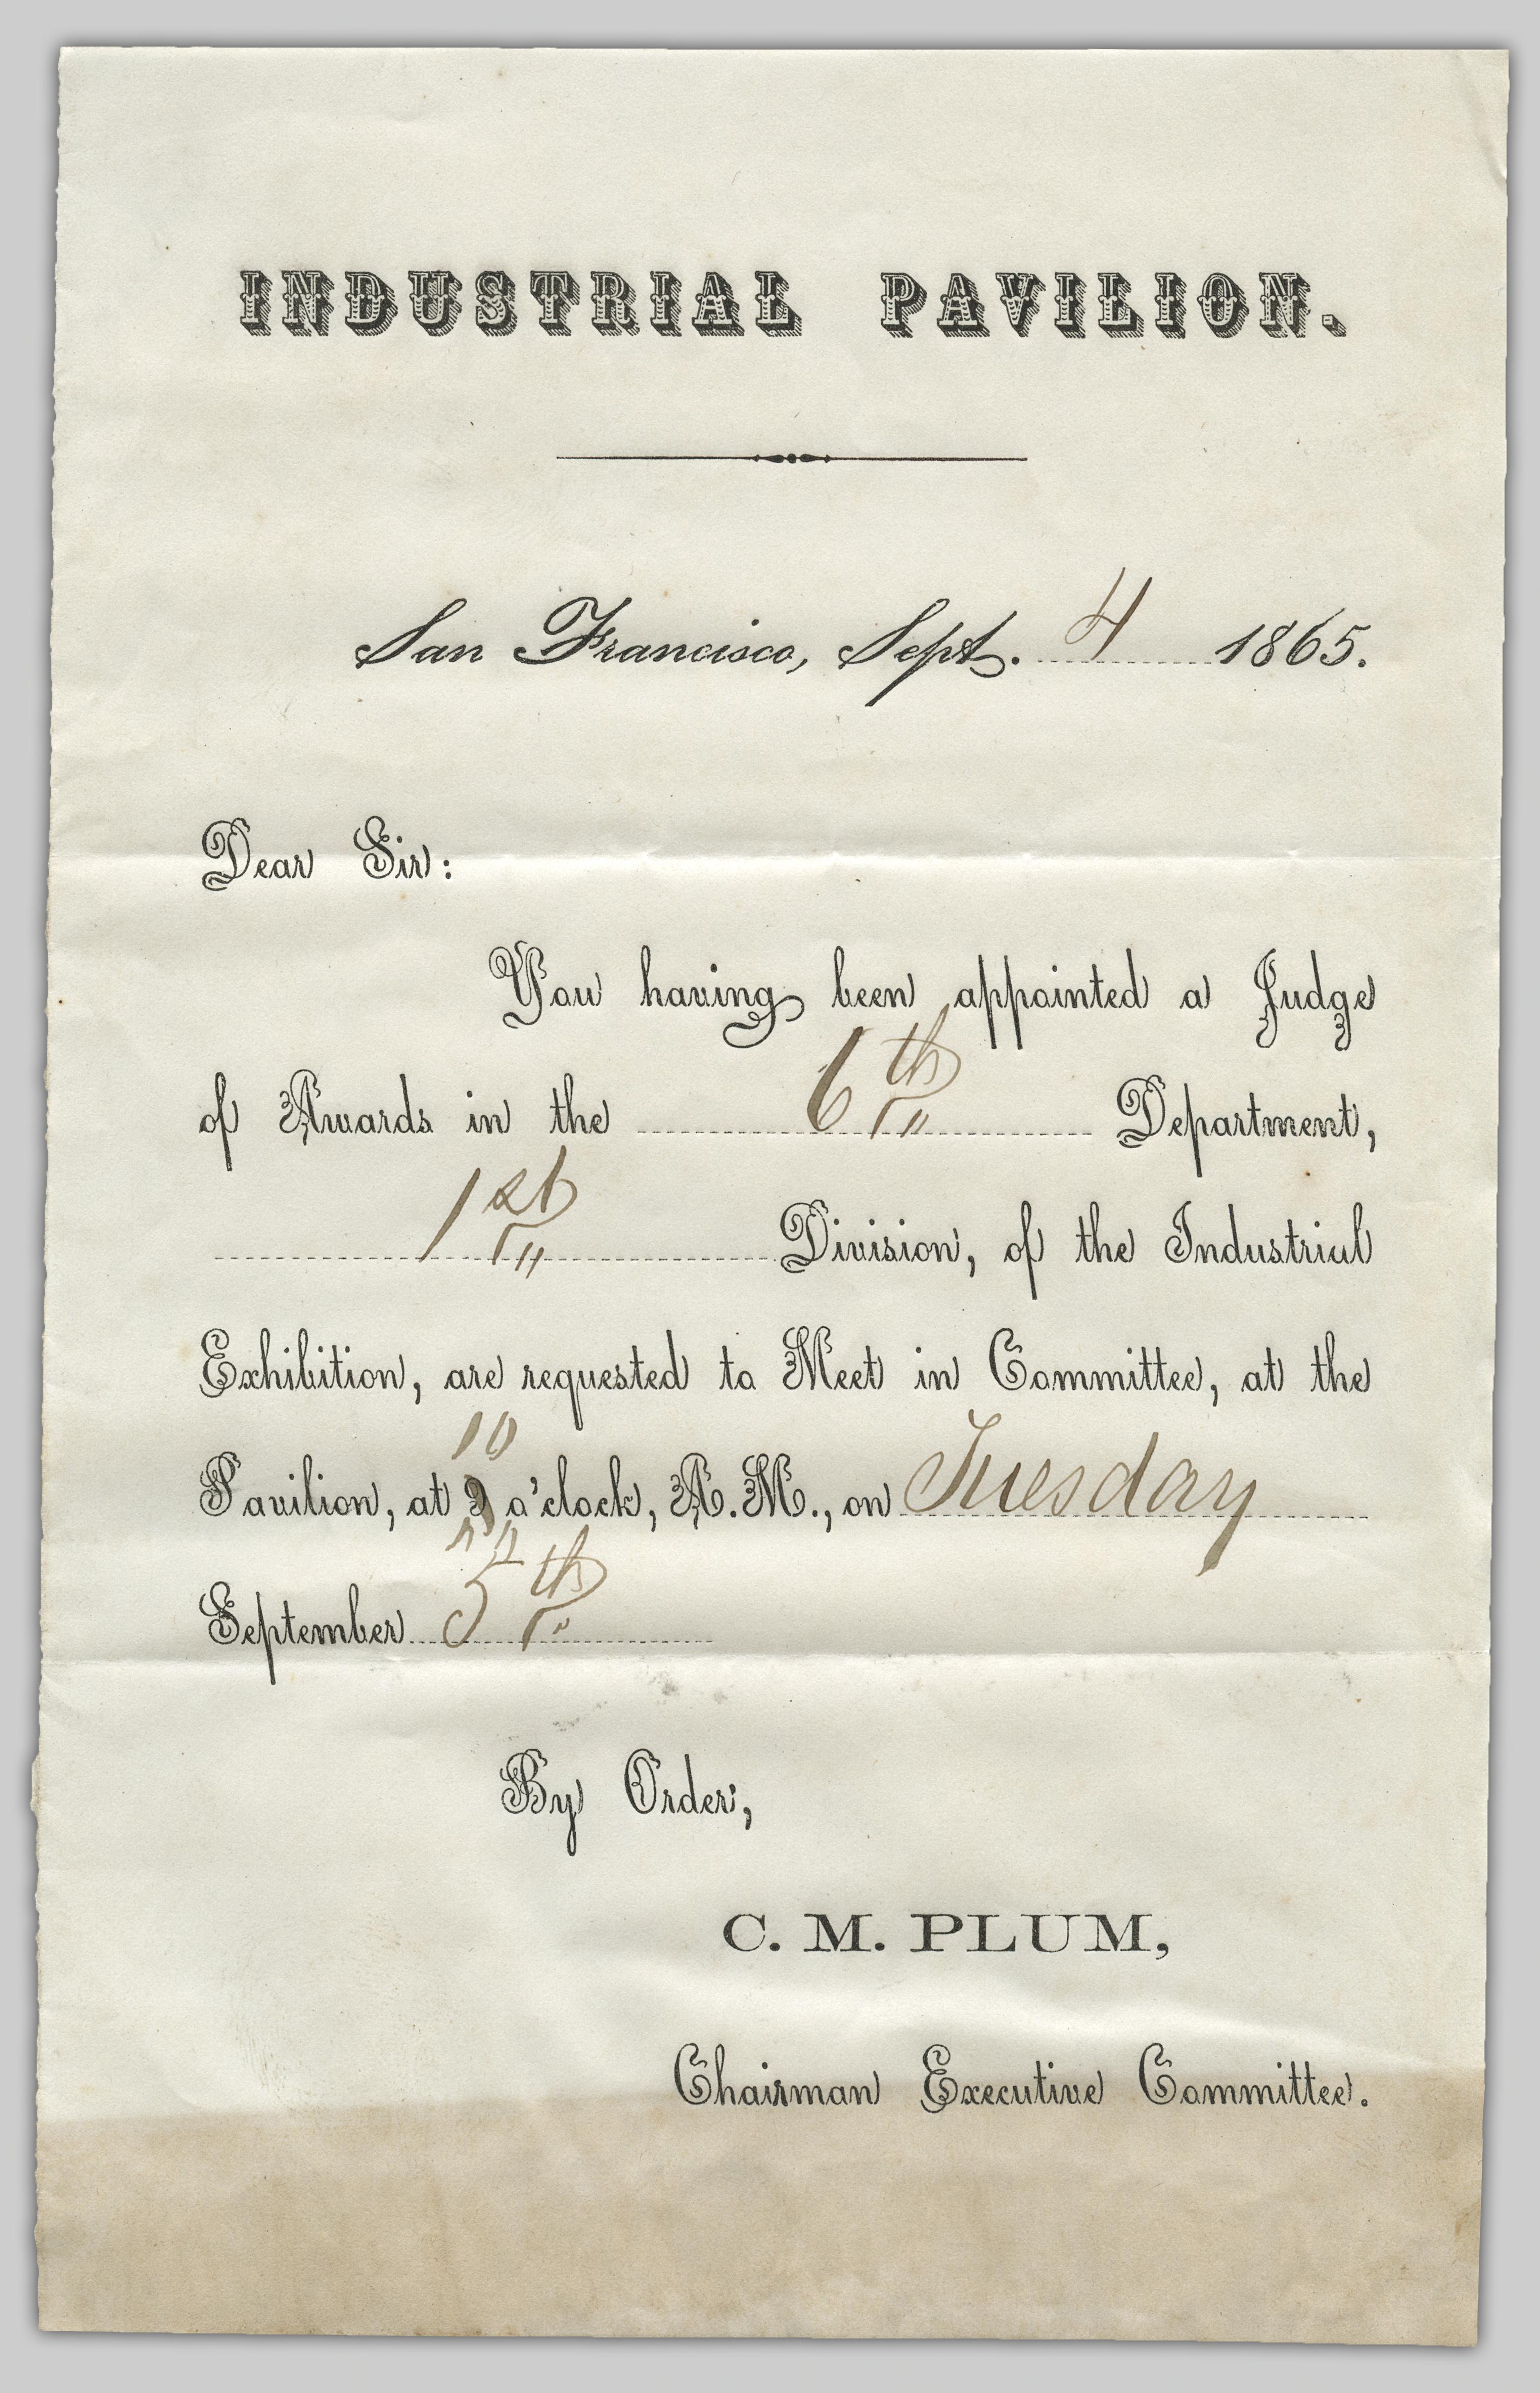 INDUSTRIAL PAVILION.
San Francisco, Sept. 4 1865.
Dear Sir:
You having been appointed a Judge
of Awards in the 6th Department,
1st Division, of the Industrial
Exhibition, are requested to Meet in Committee, at the
10
Pavilion, at 9 o'clock, A.M., on Tuesday
September 5th
By Order,
C. M. PLUM,
Chairman Executive Committee.